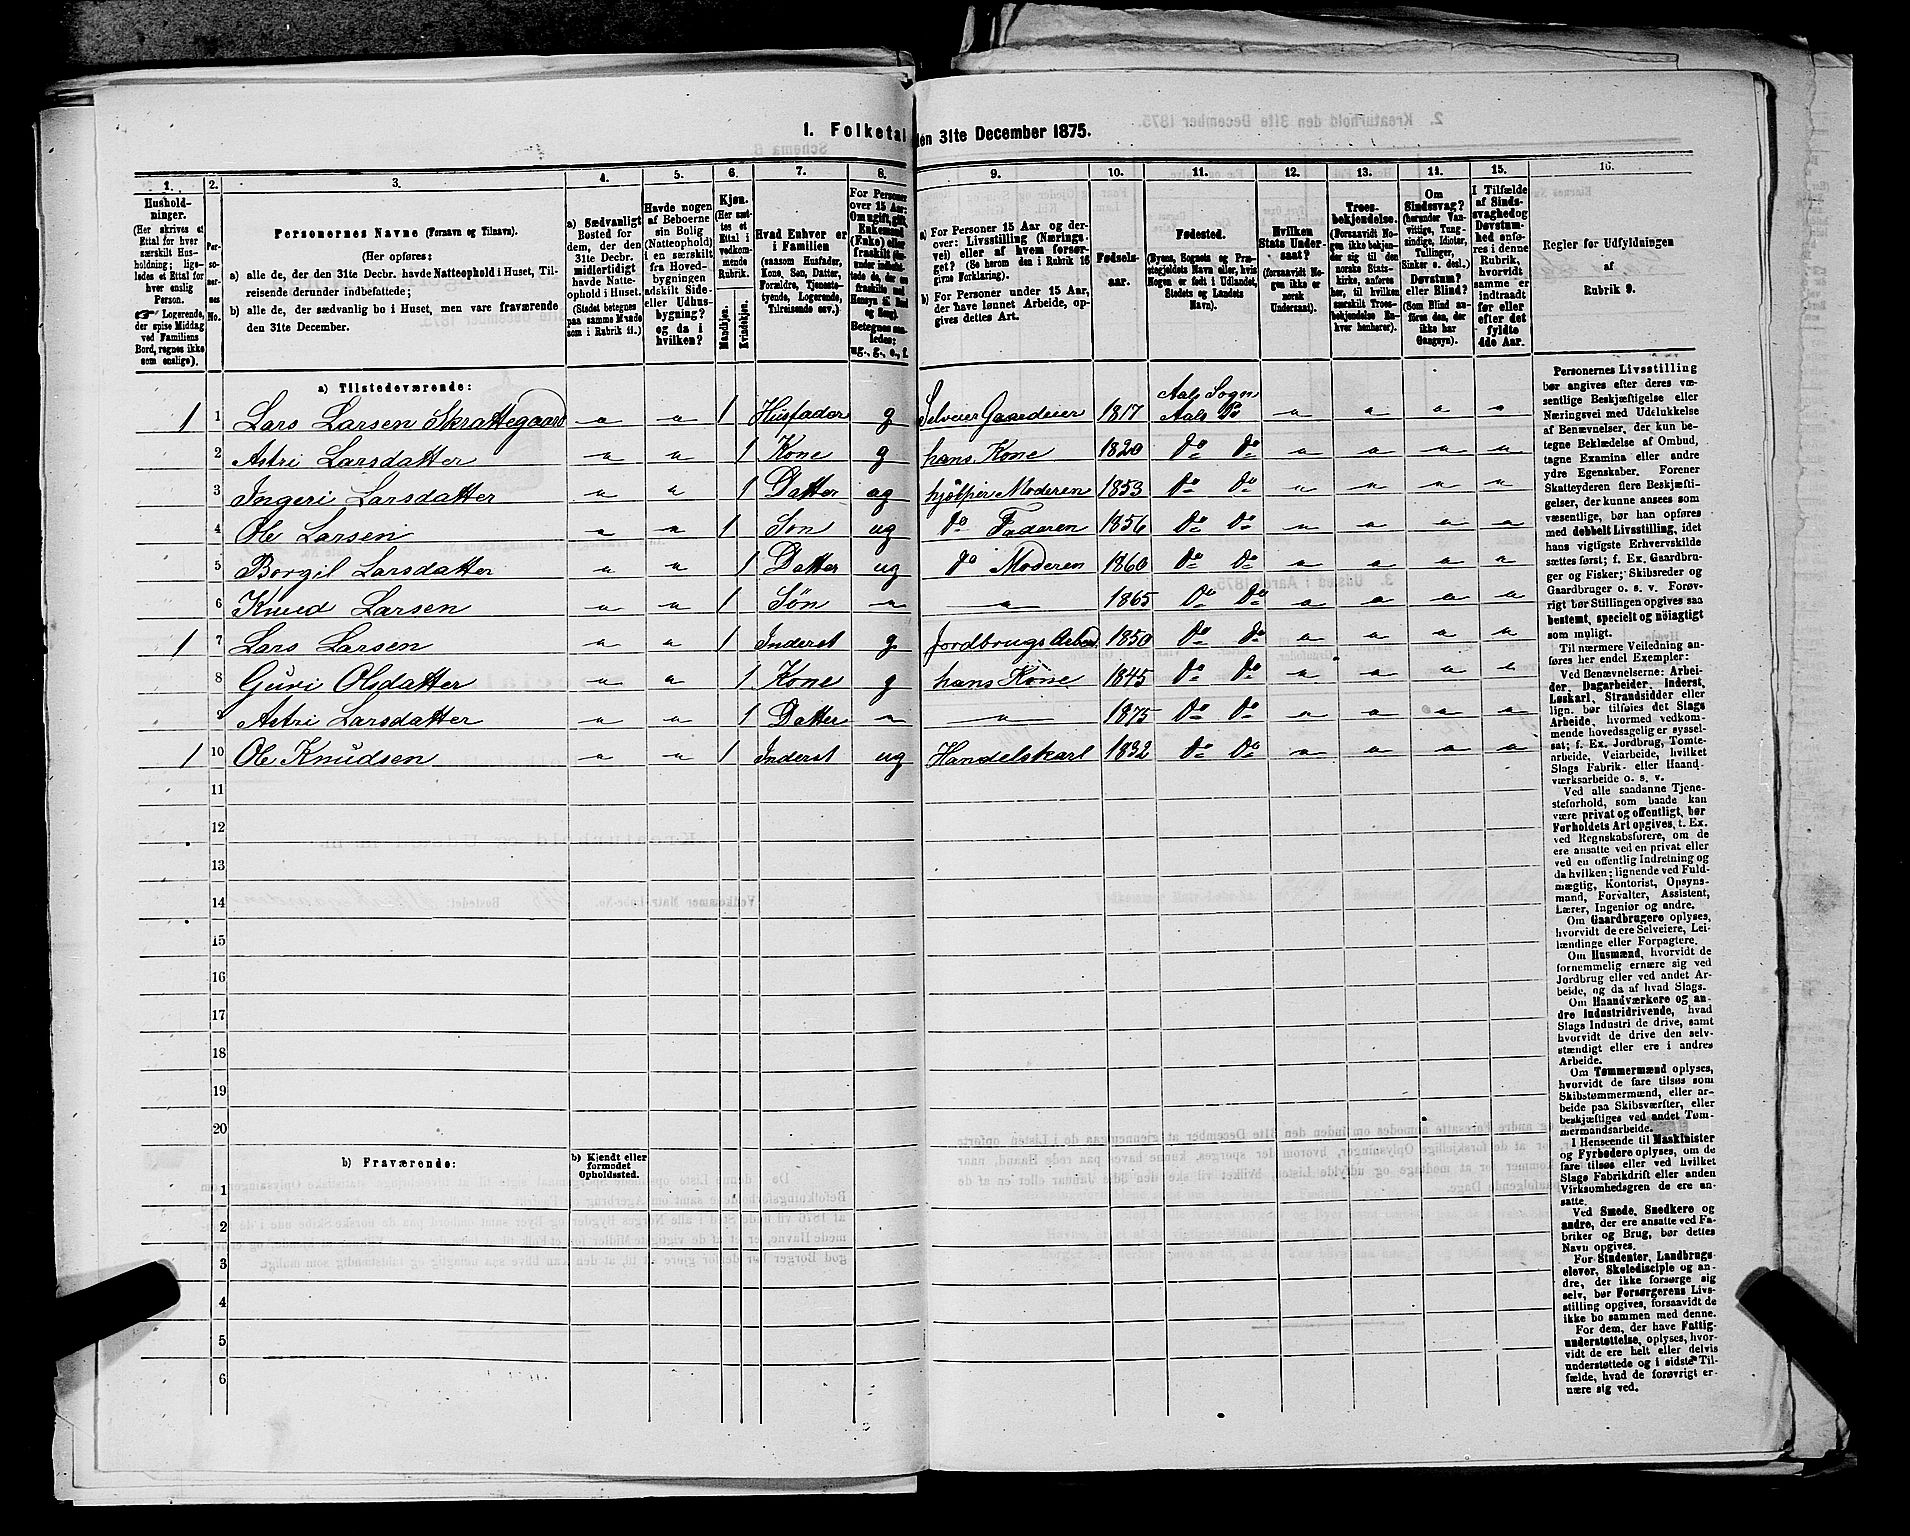 1. Folketal den 31te December 1875.
1. 2. 3. 4. 5. 6. 7. 8. 9. 10. 11. 12. 13. 14. 15. 16.
Hushold-
ninger.
(Her skrives et
Ettal for hver
særskilt Hus-
holdning; lige-
ledes et Ettal
for hver
enslig
Person.
Logerende,
der spise Middag
ved Familiens
Bord, regnes ikke
som enslige).
Per-
so-
ner-
nes
No.
Personernes Navne (Fornavn og Tilnavn).
(Her opføres:
a) alle de, der den 31te Decbr. havde Natteophold i Huset, Til-
reisende derunder indbefattede;
b) alle de, der sædvanlig bo i Huset, men vare fraværende
den 31te December.
a) Sædvanligt
Bosted for
dem, der den
31te Decbr.
midlertidigt
havde Natte-
ophold i Huset.
(Stedet betegnes
paa samme Maade
som i Rubrik 11.)
Havde nogen
af Beboerne
sin Bolig
(Natteophold)
i en særskilt
fra Hoved-
bygningen
adskilt Side-
eller Udhus-
bygning?
og da i
hvilken?
Kjøn.
(Her sæt-
tes et
Ettal i
vedkom-
mende
Rubrik.
Mandkjøn.
Kvindekjøn.
Hvad Enhver er
i Familien
(saasom Husfader,
Kone, Søn, Datter,
Forældre, Tjeneste-
tyende, Logerende,
Tilreisende osv.)
For Personer
over 15 Aar:
Om ugift, gift,
Enkemand
(Enke) eller
fraskilt
Betegnes saa-
ledes:
ug., g., e., f.
a) For Personer 15 Aar og der-
over: Livsstilling (Nærings-
vei) eller af hvem forsør-
get? (Se herom den i Rubrik 16
givne Forklaring).
b) For Personer under 15 Aar,
der have lønnet Arbeide, op-
gives dettes Art.
Fødsels-
aar.
Fødested.
(Byens, Sognets og Præ-
stegjeldets Navn eller, hvis
Nogen er født i Udlandet,
Stedets og Landets
Navn).
Hvilken
Stats Under-
saat?
(forsaavidt No-
gen ikke er
norsk
Undersaat).
Troes-
bekjendelse.
(Forsaavidt No-
gen ikke bekjen-
der sig til den
norske Stats-
kirke, anføres
her, til hvilken
særskilt Troes-
bekjendelse En-
hver henhører).
Om
Sindssvag?
(herunder Van-
vittige, Tung-
sindige, Idioter,
Tullinger,
Sinker o. desl.)
Døvstum?
eller Blind?
(Som Blind an-
føres den, der
ikke har
Gangsyn).
I Tilfælde
af Sinds-
svaghed og
Døvstum-
hed anfø-
res i denne
Rubrik,
hvorvidt
samme er
indtraadt
før eller
efter det
fyldte
4de Aar.
Regler for Udfyldningen
af
Rubrik 9.
a) Tilstedeværende:
Aals Sogn
1 1 Lars Larsen Skrattegaard " " 1 Husfader g Selveier Gaardeier 1817 Aals Do " " " "
2 Astri Larsdatter " " 1 Kone g hans Kone 1820 Do Do " " " "
3 Ingeri Larsdatter " " 1 Datter ug hjelper Moderen 1853 Do Do " " " "
4 Ole Larsen " " 1 Søn ug Do Faderen 1856 Do Do " " " "
5 Borgil Larsdatter " " 1 Datter ug Do Moderen 1860 Do Do " " " "
6 Knud Larsen " " 1 Søn " " 1865 Do Do " " " "
1 7 Lars Larsen " " 1 Inderst g. Jordbrugs Arbeid 1850 Do Do " " " "
8 Guri Olsdatter " " 1 Kone g hans Kone 1845 Do Do " " " "
9 Astri Larsdatter " " 1 Datter " " 1875 Do Do " " " "
1 10 Ole Knudsen " " 1 Inderst ug Handelskarl 1832 Do Do " " " "
11
12
13
14
15
16
17
18
19
20
b) Fraværende:
b) Kjendt eller
formodet
Opholdssted.
1
2
3
4
5
6
Personernes Livsstilling
bør angives efter deres væ-
sentlige Beskjæftigelse eller
Næringsvei med Udelukkelse
af Benævnelser, der kun be-
tegne Beklædelse af Ombud,
tagne Examina eller andre
ydre Egenskaber. Forener
Skatteyderen flere Beskjæfti-
gelser, der kunne ansees som
væsentlige, bør han opføres
med dobbelt Livsstilling, idet
hans vigtigste Erhvervskilde
sættes først; f. Ex. Gaardbru-
ger og Fisker; Skibsreder og
Gaardbruger o. s. v. Forøv-
rigt bør Stillingen opgives saa
bestemt, specielt og nöiagtigt
som muligt.
Til nærmere Veiledning an-
føres her endel Exempler:
Ved Benævnelserne: Arbei-
der, Dagarbeider, Inderst,
Løskarl, Strandsidder eller
lign. bør tilføies det Slags
Arbeide, hvormed vedkom-
mende hovedsagelig er syssel-
sat; f. Ex. Jordbrug, Tomte-
arbeide, Veiarbeide, hvilket
Slags Fabrik- eller Haand-
værksarbeide o. s. v.
Ved alle saadanne Tjene-
steforhold, som baade kan
være privat og offentligt, bør
Forholdets Art opgives, t. Ex.
ved Regnskabsførere, om de
ere ansatte ved en privat eller
ved en offentlig Indretning og
da hvilken; lignende ved Fuld-
mægtig, Kontorist, Opsyns-
mand, Forvalter, Assistent,
Lærer, Ingeniør og andre.
Om Gaardbrugere oplyses,
hvorvidt de ere Selveiere, Lei-
lændinge eller Forpagtere.
Om Husmænd, hvorvidt de
fornemmelig ernære sig ved
Jordbrug eller ved andet Ar-
beide, og da af hvad Slags.
Om Haandværkere og an-
dre Industridrivende, hvad
Slags Industri de drive, samt
hvorvidt de drive den selv-
stændigt eller ere i andres
Arbeide.
Om Tømmermænd oplyses,
hvorvidt de fare tilsøs som
Skibstømmermænd, eller ar-
beide paa Skibsværfter, eller
beskjæftiges ved andet Tøm-
mermandsarbeide.
I Henseende til Maskinister
og Fyrbødere oplyses, om de
fare tilsøs eller ved hvilket
Slags Fabrikdrift eller anden
Virksomhedsgren de ere an-
satte.
Ved Smede, Snedkere og
andre, der ere ansatte ved Fa-
briker og Brug, bør dettes
Navn opgives.
For Studenter, Landbrugs-
elever, Skoledisciple og an-
dre, der ikke forsørge sig
selv, bør Forsørgerens Livs-
stilling opgives, forsaavidt de
ikke bo sammen med denne.
For dem, der have Fattig-
understøttelse, oplyses, hvor-
vidt de ere helt eller delvis
understøttede og i sidste Til-
fælde, hvad de forøvrigt er-
nære sig ved.